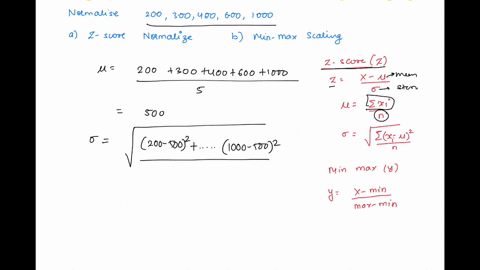 Normalise 200, 300, 400, 600, 1000
a) Z-score Normalize b) Min-max Scaling
μ = 200 + 300 + 400 + 600 + 1000
5
= 500
σ = √(200-500)² + ..... (1000-500)²
z-score (z)
z = x - μ → mean
σ →
μ = Σxi
n
σ = √Σ(xi - μ)²
n
Min max (y)
y = x - min
max - min